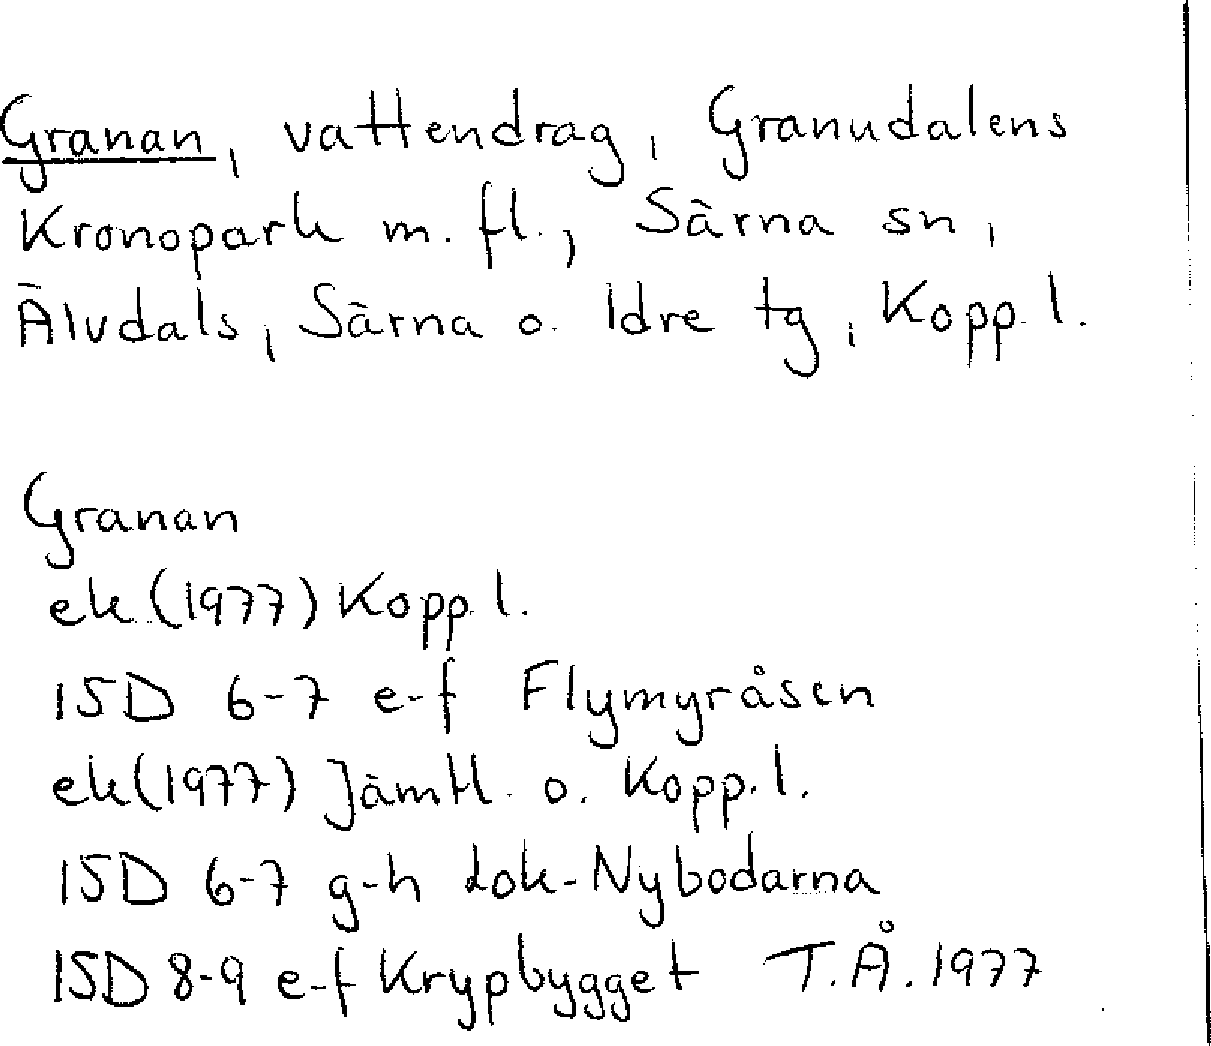 Granan, vattendrag, Granudalens
Kronopark m. fl., Särna sn,
Älvdals, Särna o. Idre tg, Kopp. l.
Granan
ek (1977) Kopp. l.
15D 6-7 e-f Flymyråsen
ek (1977) Jämtl. o. Kopp. l.
15D 6-7 g-h Lok-Nybodarna
15D 8-9 e-f Krypbygget T.Å. 1977